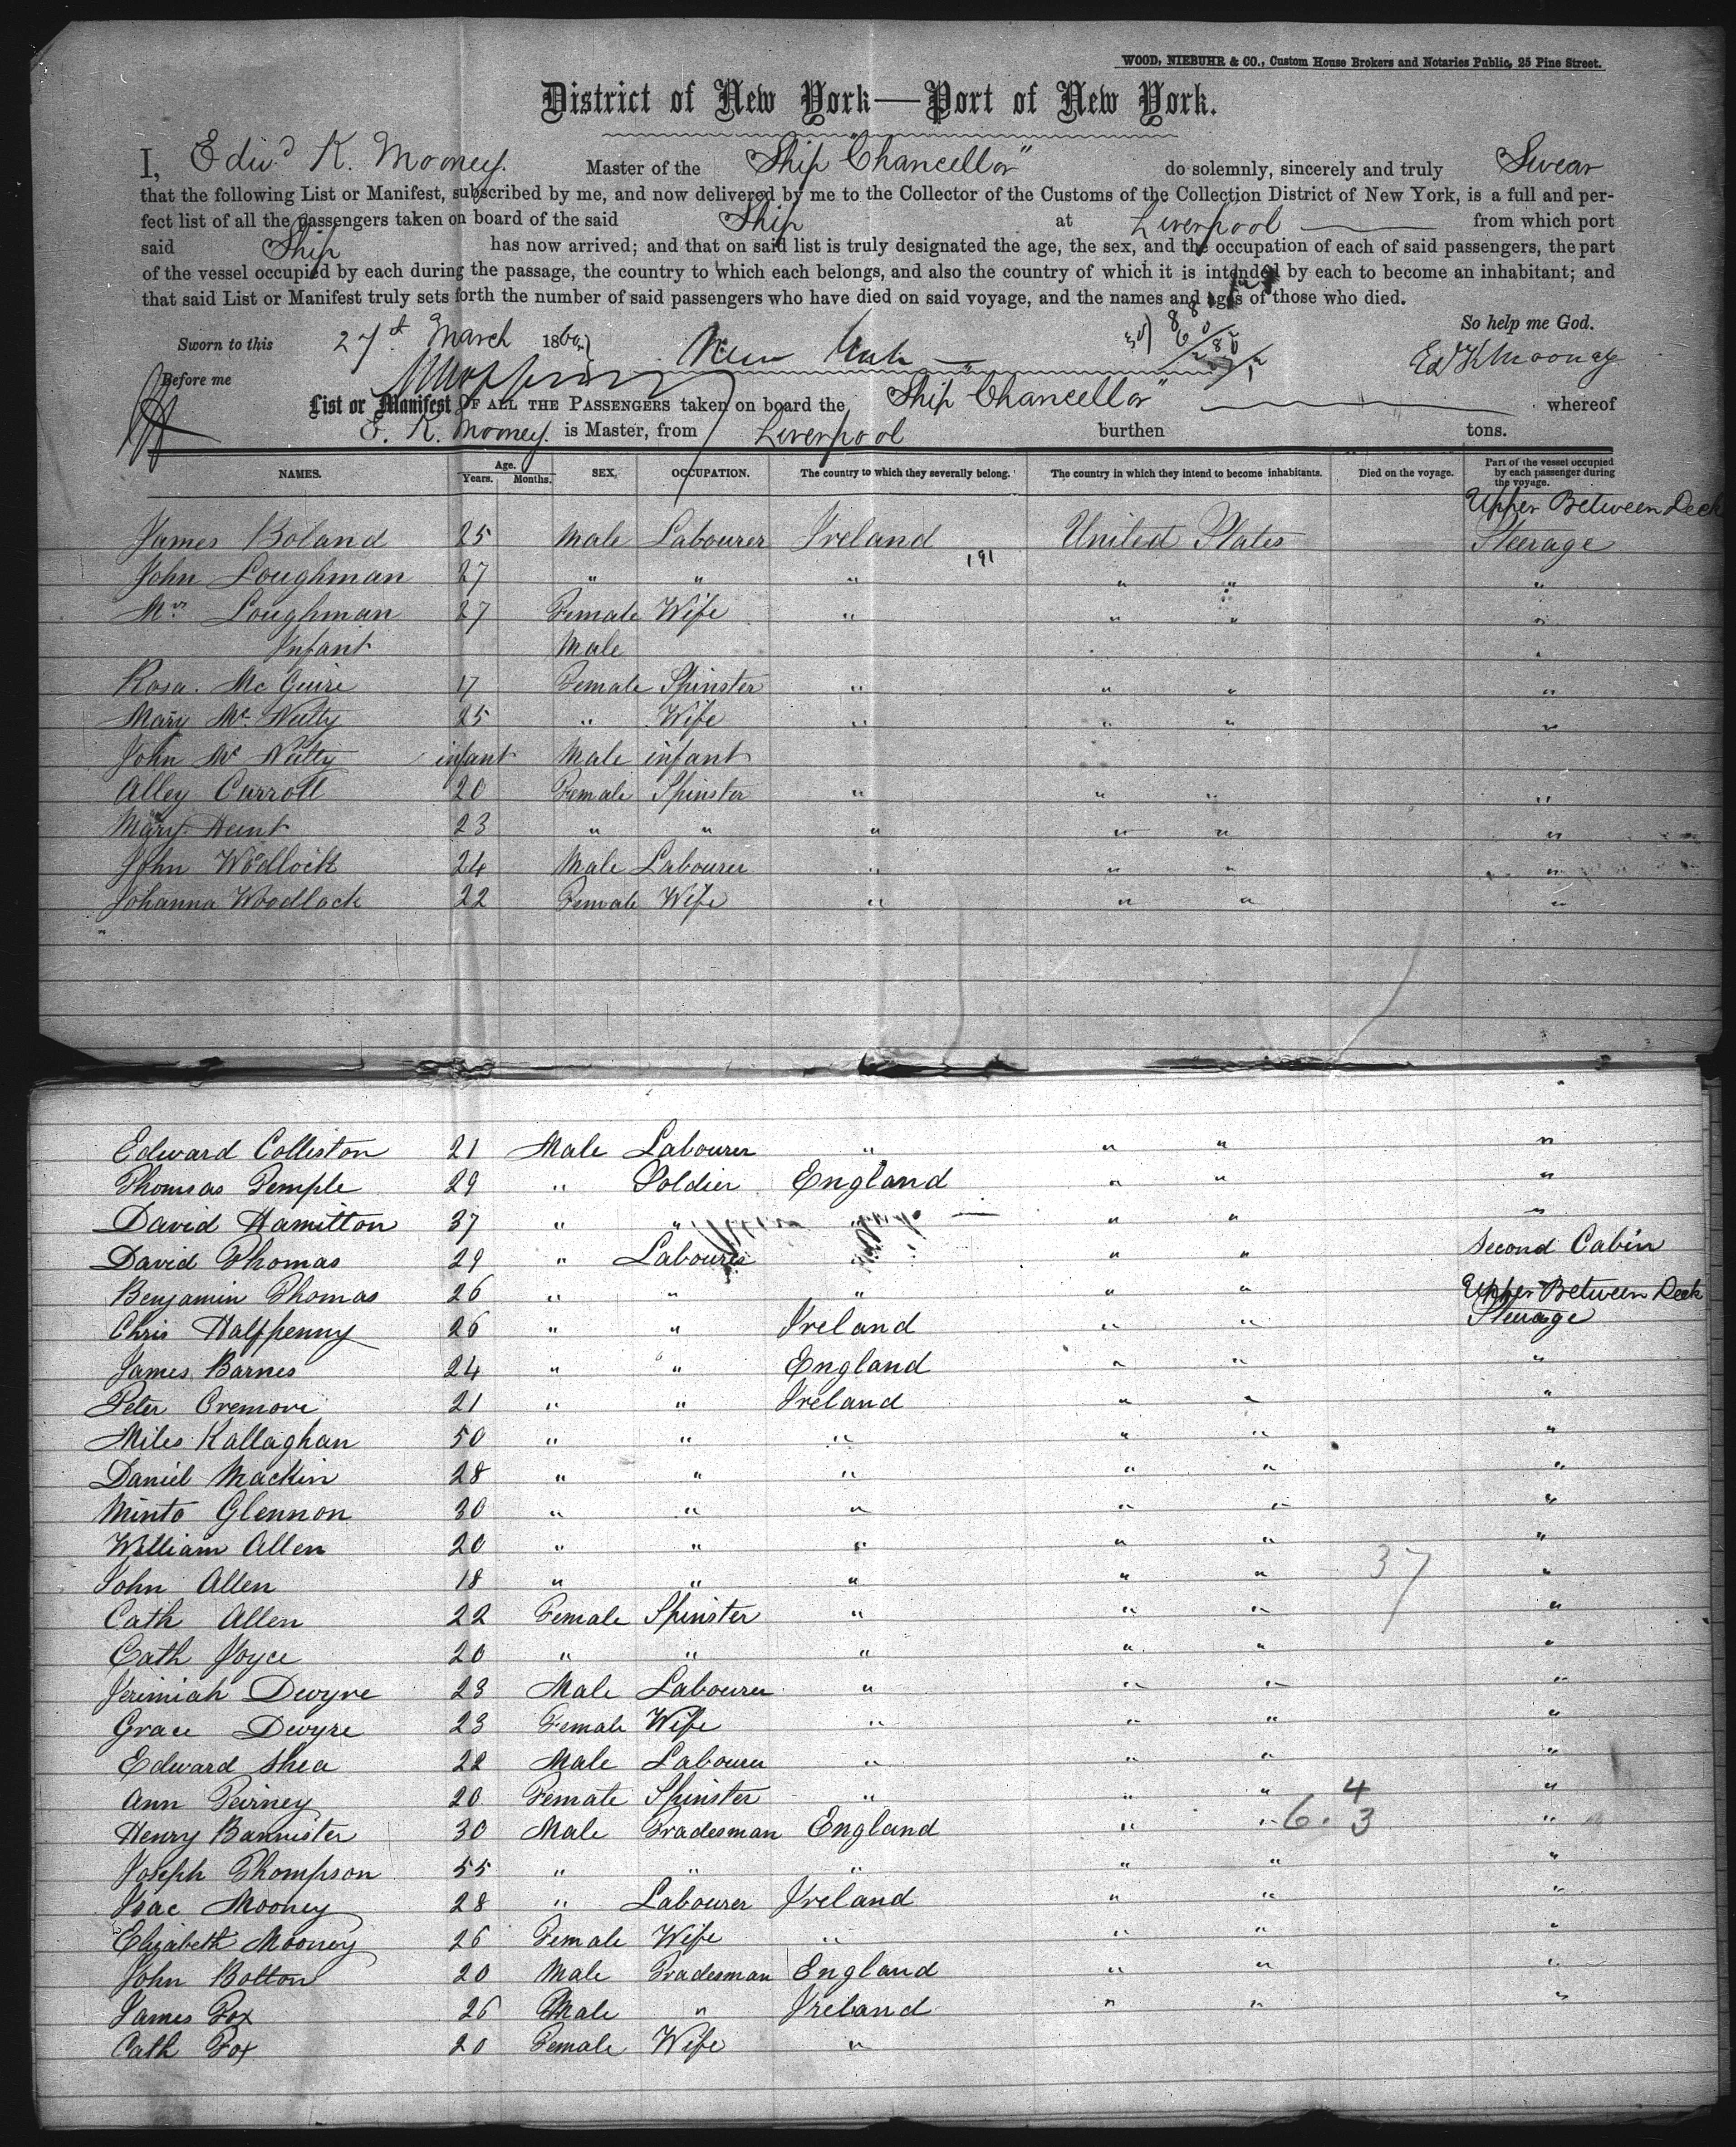 WOOD, NIEBUHR & CO., Custom House Brokers and Notaries Public, 25 Pine Street.
District of New York—Port of New York.
I, Edwd K. Mooney. Master of the Ship "Chancellor" do solemnly, sincerely and truly Swear
that the following List or Manifest, subscribed by me, and now delivered by me to the Collector of the Customs of the Collection District of New York, is a full and per-
fect list of all the passengers taken on board of the said Ship at Liverpool from which port
said Ship has now arrived; and that on said list is truly designated the age, the sex, and the occupation of each of said passengers, the part
of the vessel occupied by each during the passage, the country to which each belongs, and also the country of which it is intended by each to become an inhabitant; and
that said List or Manifest truly sets forth the number of said passengers who have died on said voyage, and the names and ages of those who died.
So help me God.
Sworn to this 27st March 1860 New York
Ed K Mooney
Before me
List or Manifest OF ALL THE PASSENGERS taken on board the Ship "Chancellor" whereof
E. K. Mooney. is Master, from Liverpool burthen tons.
NAMES. Age. Years. Months. SEX. OCCUPATION. The country to which they severally belong. The country in which they intend to become inhabitants. Died on the voyage. Part of the vessel occupied by each passenger during the voyage.
Upper Between Deck
James Boland 25 Male Labourer Ireland United States Steerage
191
John Loughman 27 " " " " " "
Mrs Loughman 27 Female Wife " " " "
Infant Male
Rosa. Mc Guire 17 Female Spinster " " " "
Mary Mc Nulty 25 " Wife " " " "
John Mc Nulty infant Male infant
Alley Carroll 20 Female Spinster " " " "
Mary Hunt 23 " " " " " "
John Wodlock 24 Male Labourer " " " "
Johanna Woodlock 22 Female Wife " " " "
Edward Colliston 21 Male Labourer " " " "
Thomas Temple 29 " Soldier England " " "
David Hamilton 37 " " " " " "
David Thomas 29 " Labourer " " " Second Cabin
Benjamin Thomas 26 " " " " " Upper Between Deck
Chris Halfpenny 26 " " Ireland " " Steerage
James Barnes 24 " " England " " "
Peter Cremore 21 " " Ireland " " "
Miles Kallaghan 50 " " " " " "
Daniel Mackin 28 " " " " " "
Minto Glennon 30 " " " " " "
William Allen 20 " " " " " "
37
John Allen 18 " " " " " "
Cath Allen 22 Female Spinster " " " "
Cath Joyce 20 " " " " " "
Jerimiah Dwyre 23 Male Labourer " " " "
Grace Dwyre 23 Female Wife " " " "
Edward Shea 22 Male Labourer " " " "
Ann Teirney 20 Female Spinster " " " 4 "
Henry Bannister 30 Male Tradesman England " " 6. 3 "
Joseph Thompson 55 " " " " " "
Isac Mooney 28 " Labourer Ireland " " "
Elizabeth Mooney 26 Female Wife " " " "
John Bolton 20 Male Tradesman England " " "
James Fox 26 Male " Ireland " " "
Cath Fox 20 Female Wife "